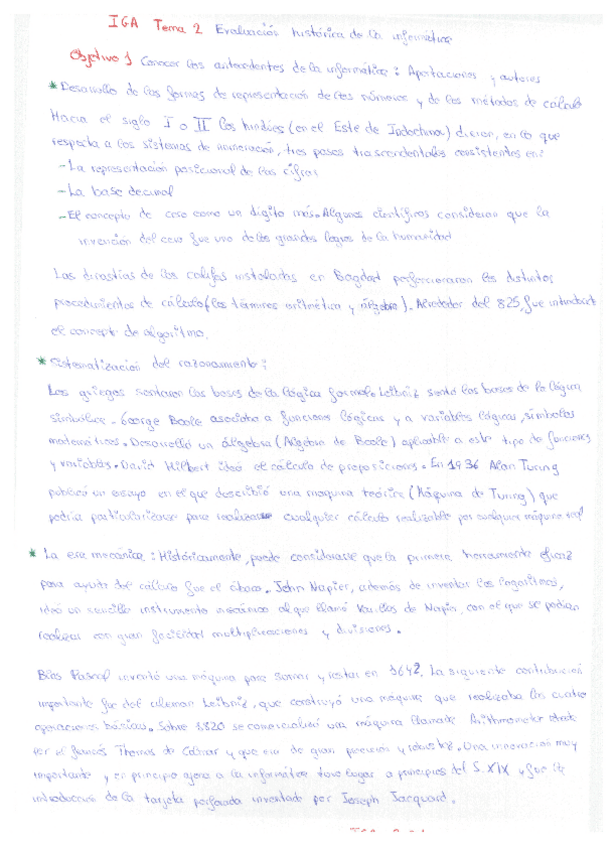 IGA Tema 2 Evaluación histórica de la informática
Objetivo 1 Conocer los antecedentes de la informática: Aportaciones y autores
* Desarrollo de las formas de representación de los números y de los métodos de cálculo
Hacia el siglo I o II los hindúes (en el Este de Indochina) dieron, en lo que
respecta a los sistemas de numeración, tres pasos trascendentales consistentes en:
- La representación posicional de las cifras
- La base decimal
- El concepto de cero como un dígito más. Algunos científicos consideran que la
invención del cero fue uno de los grandes logros de la humanidad
Las dinastías de los califas instalados en Bagdad perfeccionaron los distintos
procedimientos de cálculo (los términos aritmética y álgebra). Alrededor del 825, fue introducido
el concepto de algoritmo.
* Sistematización del razonamiento:
Los griegos sentaron las bases de la lógica formal. Leibniz sentó las bases de la lógica
simbólica. George Boole asociaba a funciones lógicas y a variables lógicas, símbolos
matemáticos. Desarrolló un álgebra (Álgebra de Boole) aplicable a este tipo de funciones
y variables. David Hilbert ideó el cálculo de proposiciones. En 1936 Alan Turing
publicó un ensayo en el que describió una maquina teórica (Máquina de Turing) que
podría particularizarse para realizar cualquier cálculo realizable por cualquier máquina real
* La era mecánica: Históricamente, puede considerarse que la primera herramienta eficaz
para ayuda del cálculo fue el ábaco. John Napier, además de inventar los logaritmos,
ideó un sencillo instrumento mecánico al que llamó Varillas de Napier, con el que se podían
realizar con gran facilidad multiplicaciones y divisiones.
Blas Pascal inventó una máquina para sumar y restar en 1642. La siguiente contribución
importante fue del aleman Leibniz, que construyó una máquina que realizaba las cuatro
operaciones básicas. Sobre 1820 se comercializó una máquina llamada Arithmometer
por el francés Thomas de Colmar y que era de gran precisión y robustez. Una innovación muy
importante y en principio ajena a la informática tuvo lugar a principios del S. XIX y fue la
introducción de la tarjeta perforada inventada por Joseph Jacquard.